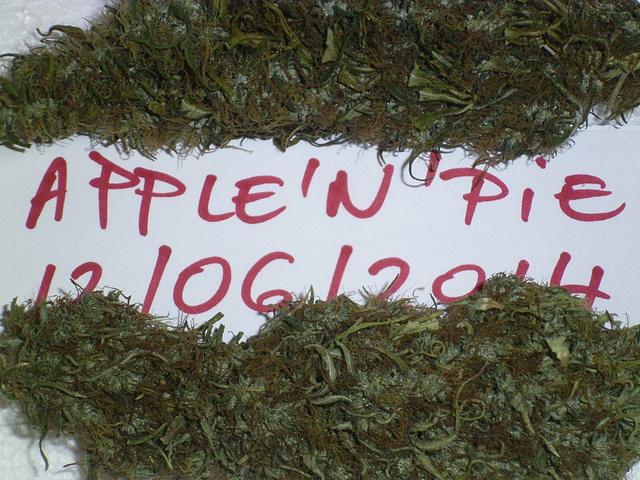 APPLE'N'PIE
12/06/2014